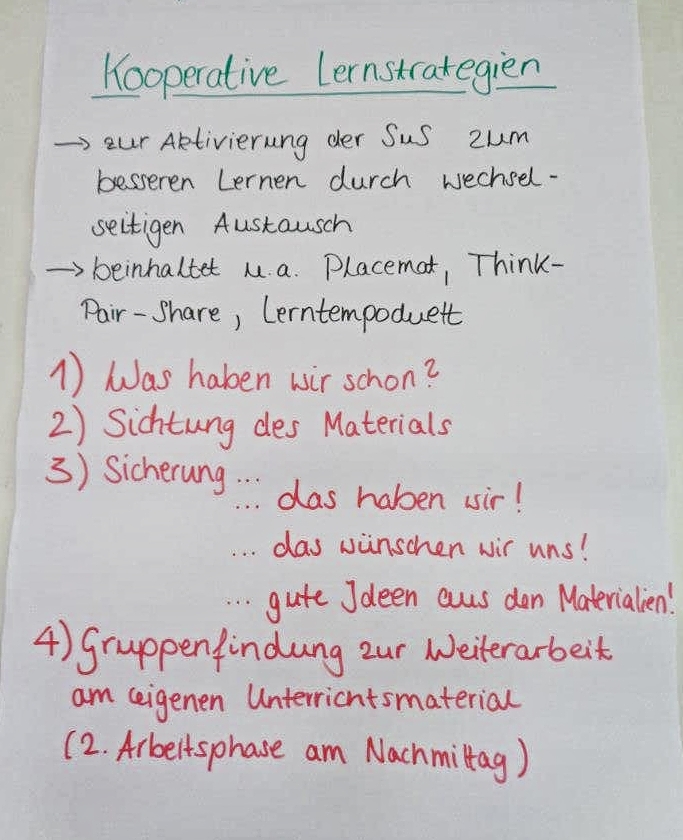 Kooperative Lernstrategien
→ zur Aktivierung der SuS zum
besseren Lernen durch wechsel-
seitigen Austausch
→ beinhaltet u.a. Placemat, Think-
Pair-Share, Lerntempoduett
1) Was haben wir schon?
2) Sichtung des Materials
3) Sicherung ...
... das haben wir!
... das wünschen wir uns!
... gute Ideen aus den Materialien!
4) Gruppenfindung zur Weiterarbeit
am eigenen Unterrichtsmaterial
(2. Arbeitsphase am Nachmittag)